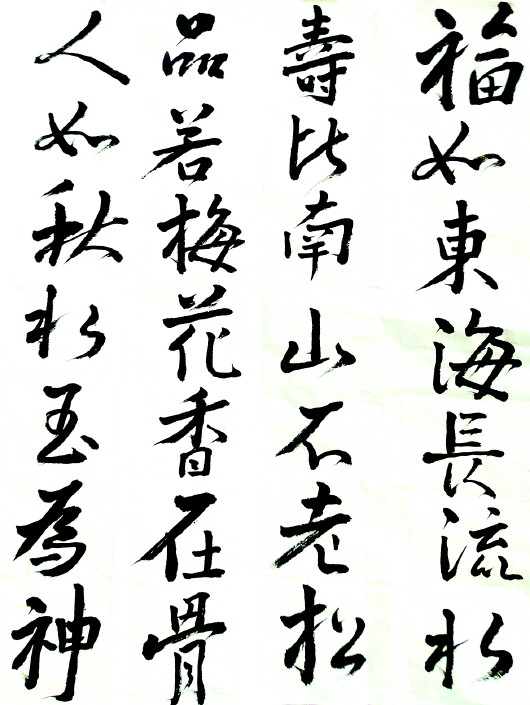 福如東海長流水
壽比南山不老松
品若梅花香在骨
人如秋水玉為神